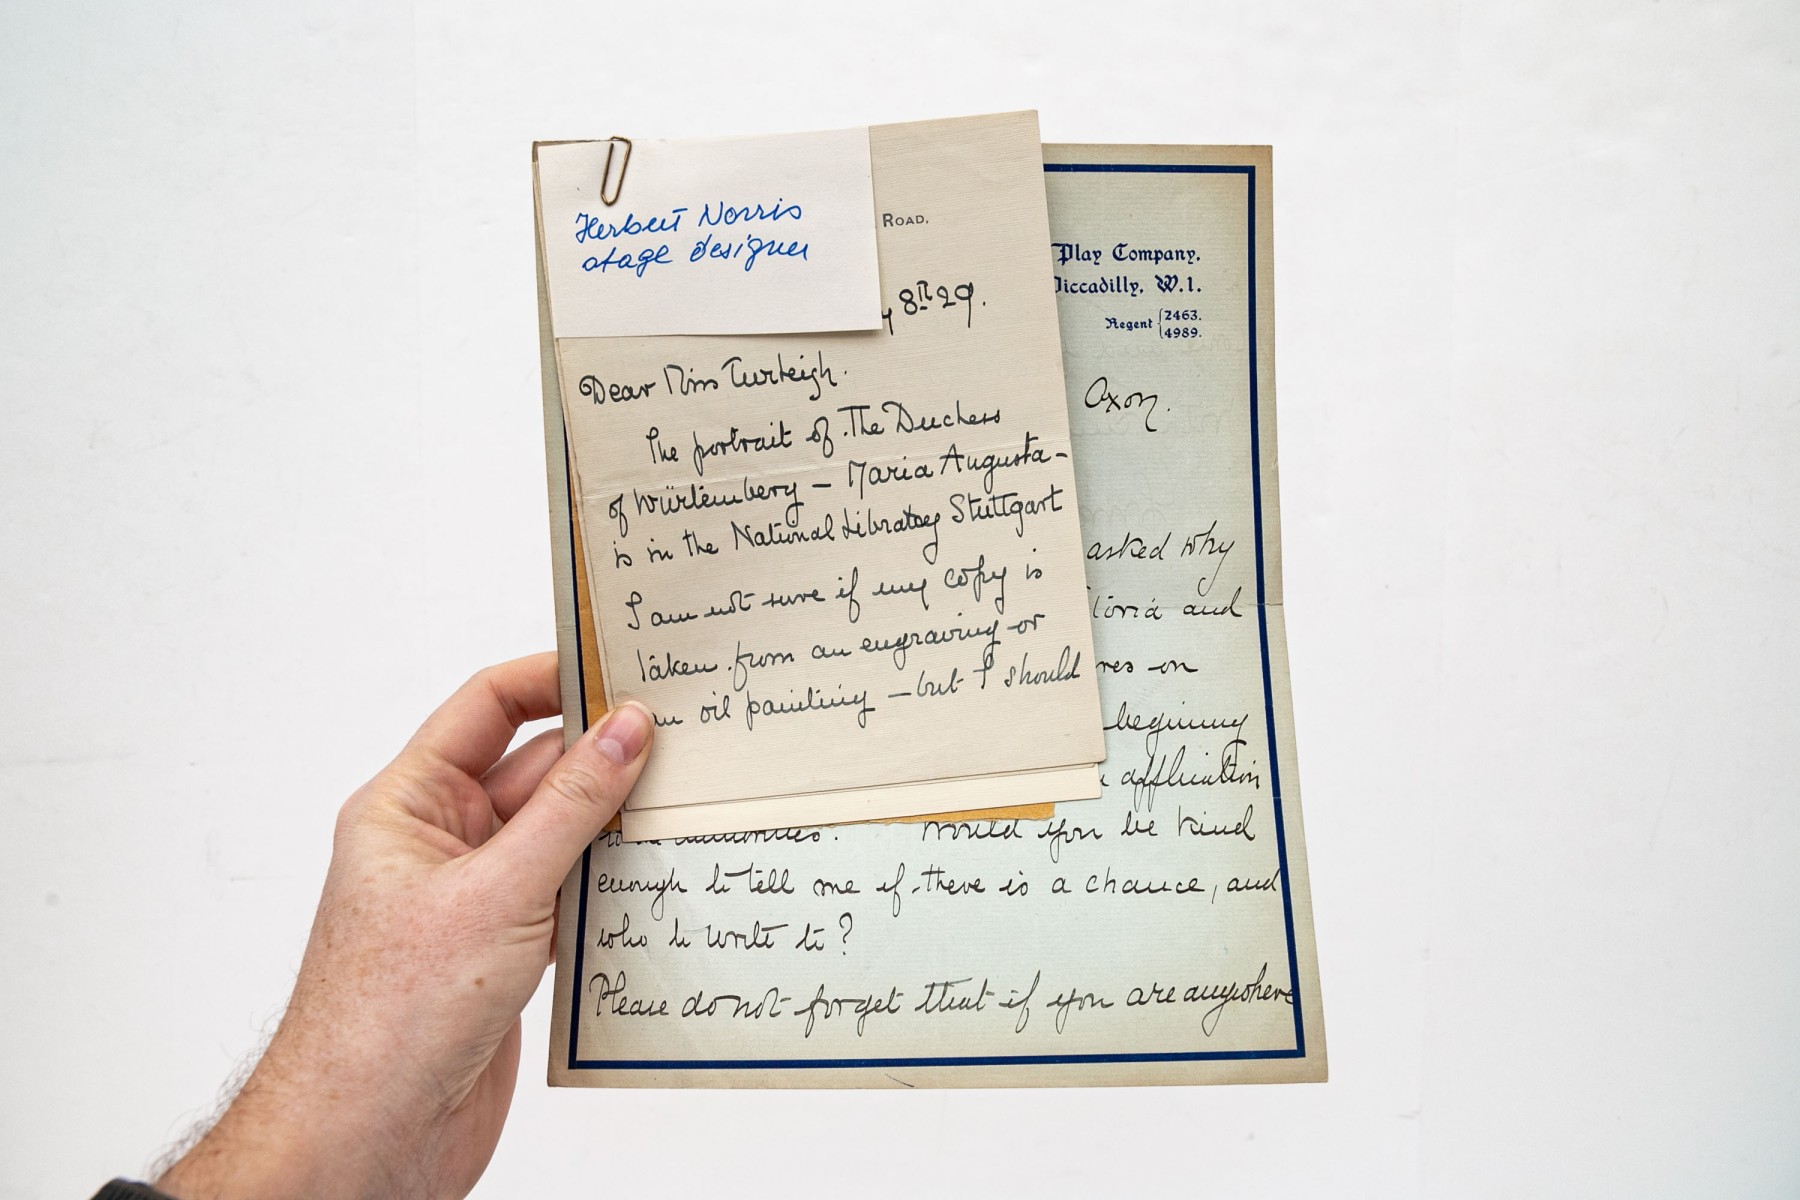 Herbert Norris
stage designer
ROAD.
8th 29.
Dear Miss
The portrait of The Duchess
of Würtemberg – Maria Augusta –
is in the National Library Stuttgart
I am not sure if my copy is
taken from an engraving or
an oil painting – but I should
Play Company.
Piccadilly, W.1.
Regent {2463.
4989.
Oxon.
asked why
and
on
beginning
application
to authorities. Would you be kind
enough to tell me if there is a chance, and
who to write to?
Please do not forget that if you are anywhere